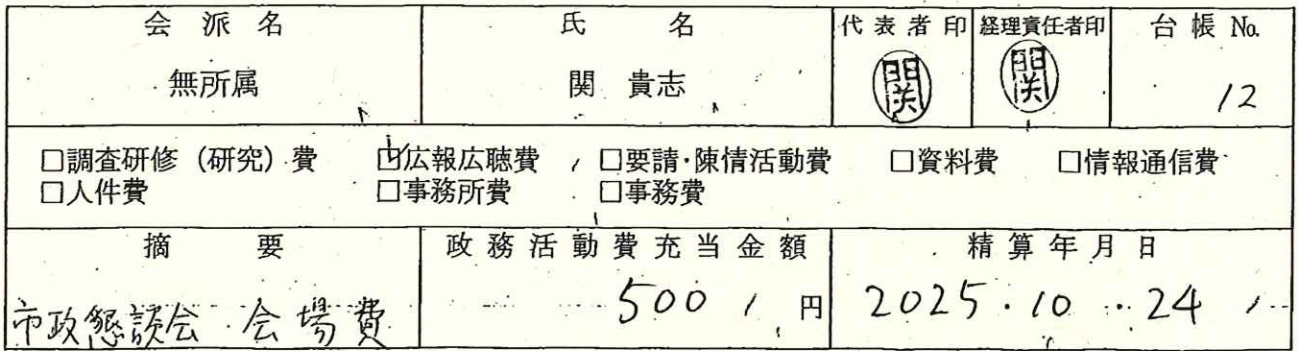 会派名 氏名 代表者印 経理責任者印 台帳No.
無所属 関 貴志 関 関 12
□調査研修（研究）費 ☑広報広聴費 □要請・陳情活動費 □資料費 □情報通信費
□人件費 □事務所費 □事務費
摘要 政務活動費充当金額 精算年月日
市政懇談会 会場費 500 円 2025.10.24